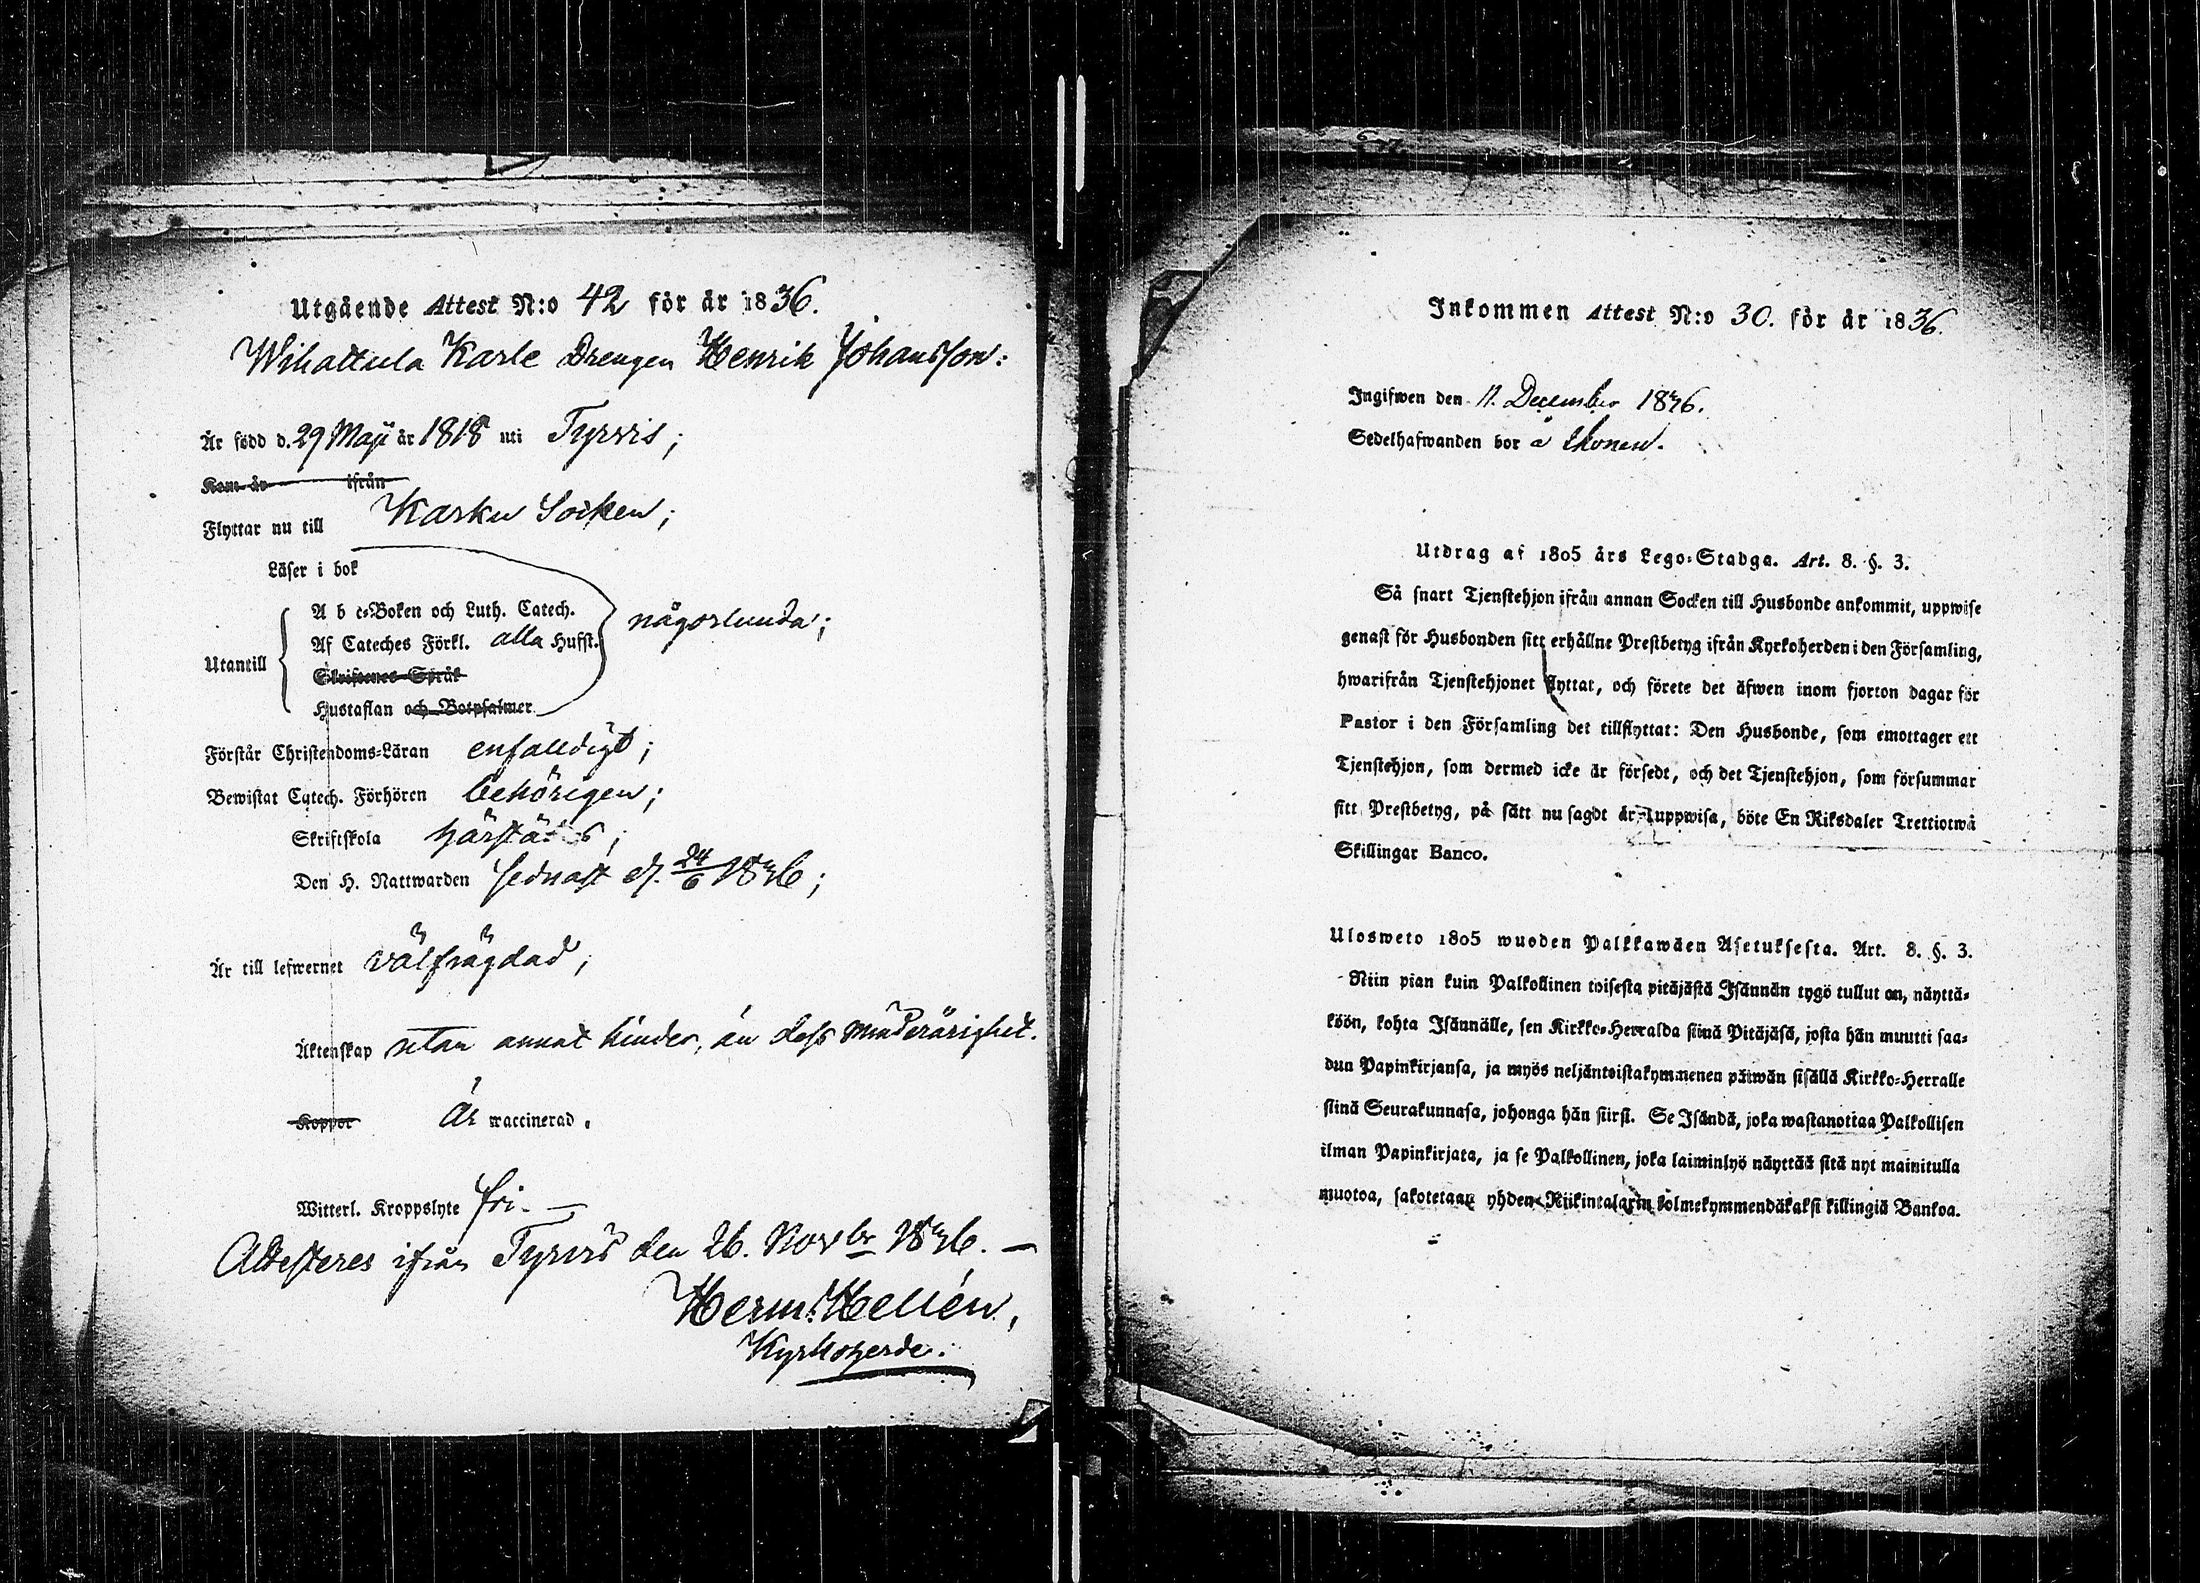 Utgående Attest N:o 42 för år 1836.
Wihattula Karle Drengen Henrik Johansson:
Är född d. 29 Maji år 1818 uti Tyrvis;
Kom år ifrån
Flyttar nu till Karku Socken;
Läser i bok
Utantill
A b c-Boken och Luth. Catech.
Af Cateches Förkl. alla Hufst.
Skriftenes Språk
Hustaflan och Botpsalmer
någorlunda;
Förstår Christendoms-Läran enfaldigt;
Bewistat Catech. Förhören behörigen;
Skriftskola härstädes;
Den H. Nattwarden sednast d. 24/6 1836;
Är till lefwernet välfrägdad;
Äktenskap utan annat hinder, än dess minderårighet.
Koppor Är waccinerad.
Witterl. Kroppslyte fri. —
Attesteres ifrån Tyrvis den 26. Novbr 1836. —
Herm. Hellén,
Kyrkoherde.
Inkommen Attest N:o 30. för år 1836.
Ingifwen den 11. December 1836.
Sedelhafwanden bor å
Utdrag af 1805 års Lego-Stadga. Art. 8. §. 3.
Så snart Tjenstehjon ifrån annan Socken till Husbonde ankommit, uppwise
genast för Husbonden sitt erhållne Prestbetyg ifrån Kyrkoherden i den Församling,
hwarifrån Tjenstehjonet flyttat, och förete det äfwen inom fjorton dagar för
Pastor i den Församling det tillflyttat: Den Husbonde, som emottager ett
Tjenstehjon, som dermed icke är försedt, och det Tjenstehjon, som försummar
sitt Prestbetyg, på sätt nu sagdt är, uppwisa, böte En Riksdaler Trettiotwå
Skillingar Banco.
Ulosweto 1805 wuoden Palkkawäen Asetuksesta. Art. 8. §. 3.
Niin pian kuin Palkollinen toisesta pitäjästä Isännän tygö tullut on, näyttä-
köön, kohta Isännälle, sen Kirkko-Herralda siinä Pitäjäsä, josta hän muutti saa-
dun Papinkirjansa, ja myös neljäntoistakymmenen päiwän sisällä Kirkko-Herralle
siinä Seurakunnasa, johonga hän siirsi. Se Isändä, joka wastanottaa Palkollisen
ilman Papinkirjata, ja se Palkollinen, joka laiminlyö näyttää sitä nyt mainitulla
muotoa, sakotetaan yhden Riikintalarin kolmekymmendäkaksi killingiä Bankoa.